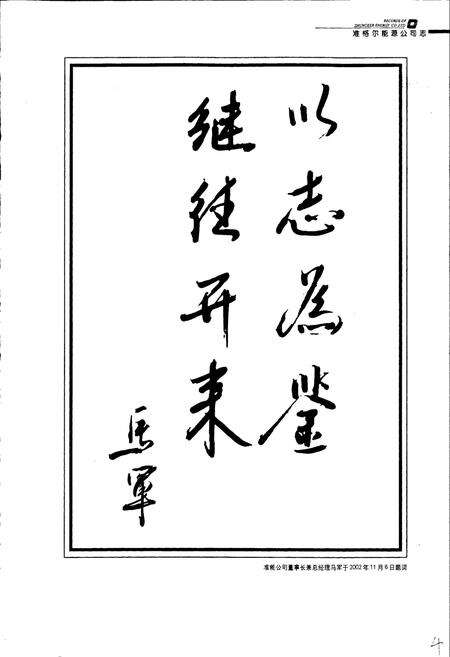 RECORDS OF
ZHUNGEER ENERGY CO.,LTD
准格尔能源公司志
以志為鉴
继往开来
马军
准能公司董事长兼总经理马军于2002年11月6日题词